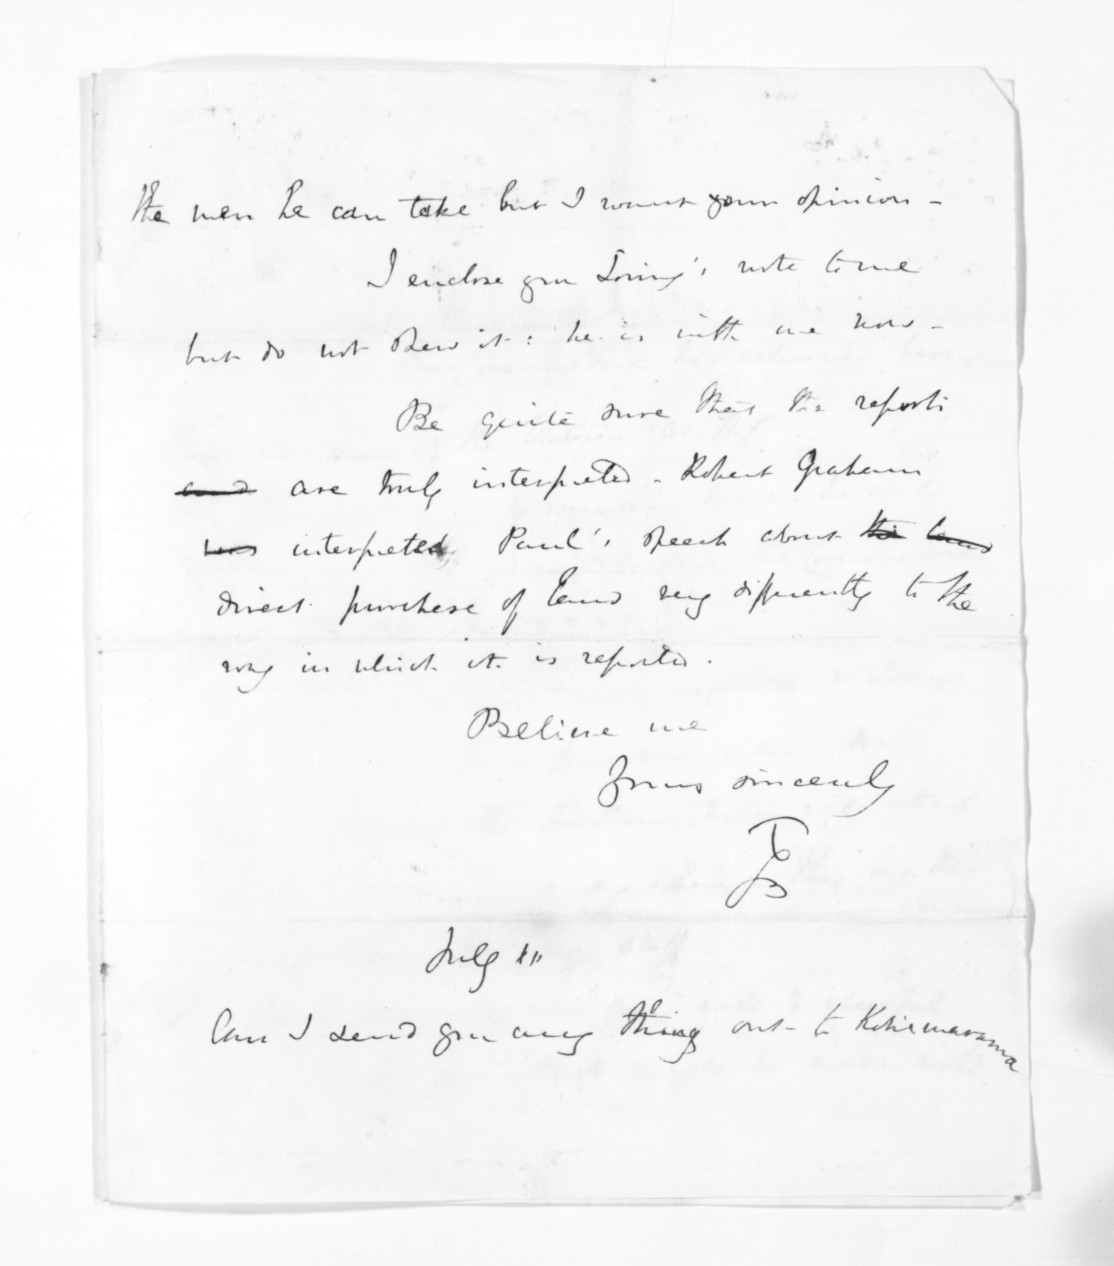 the men he can take but I want your opinion -
I enclose you Loring's note to me
but do not shew it: he is with me now -
Be quite sure that the reports
and are truly interpreted - Robert Graham
was interpreted, Paul's speech about the land
direct purchase of land very differently to the
way in which it is reported.
Believe me
Yours sincerely
July 11
Can I send you any thing out to Kohimarama